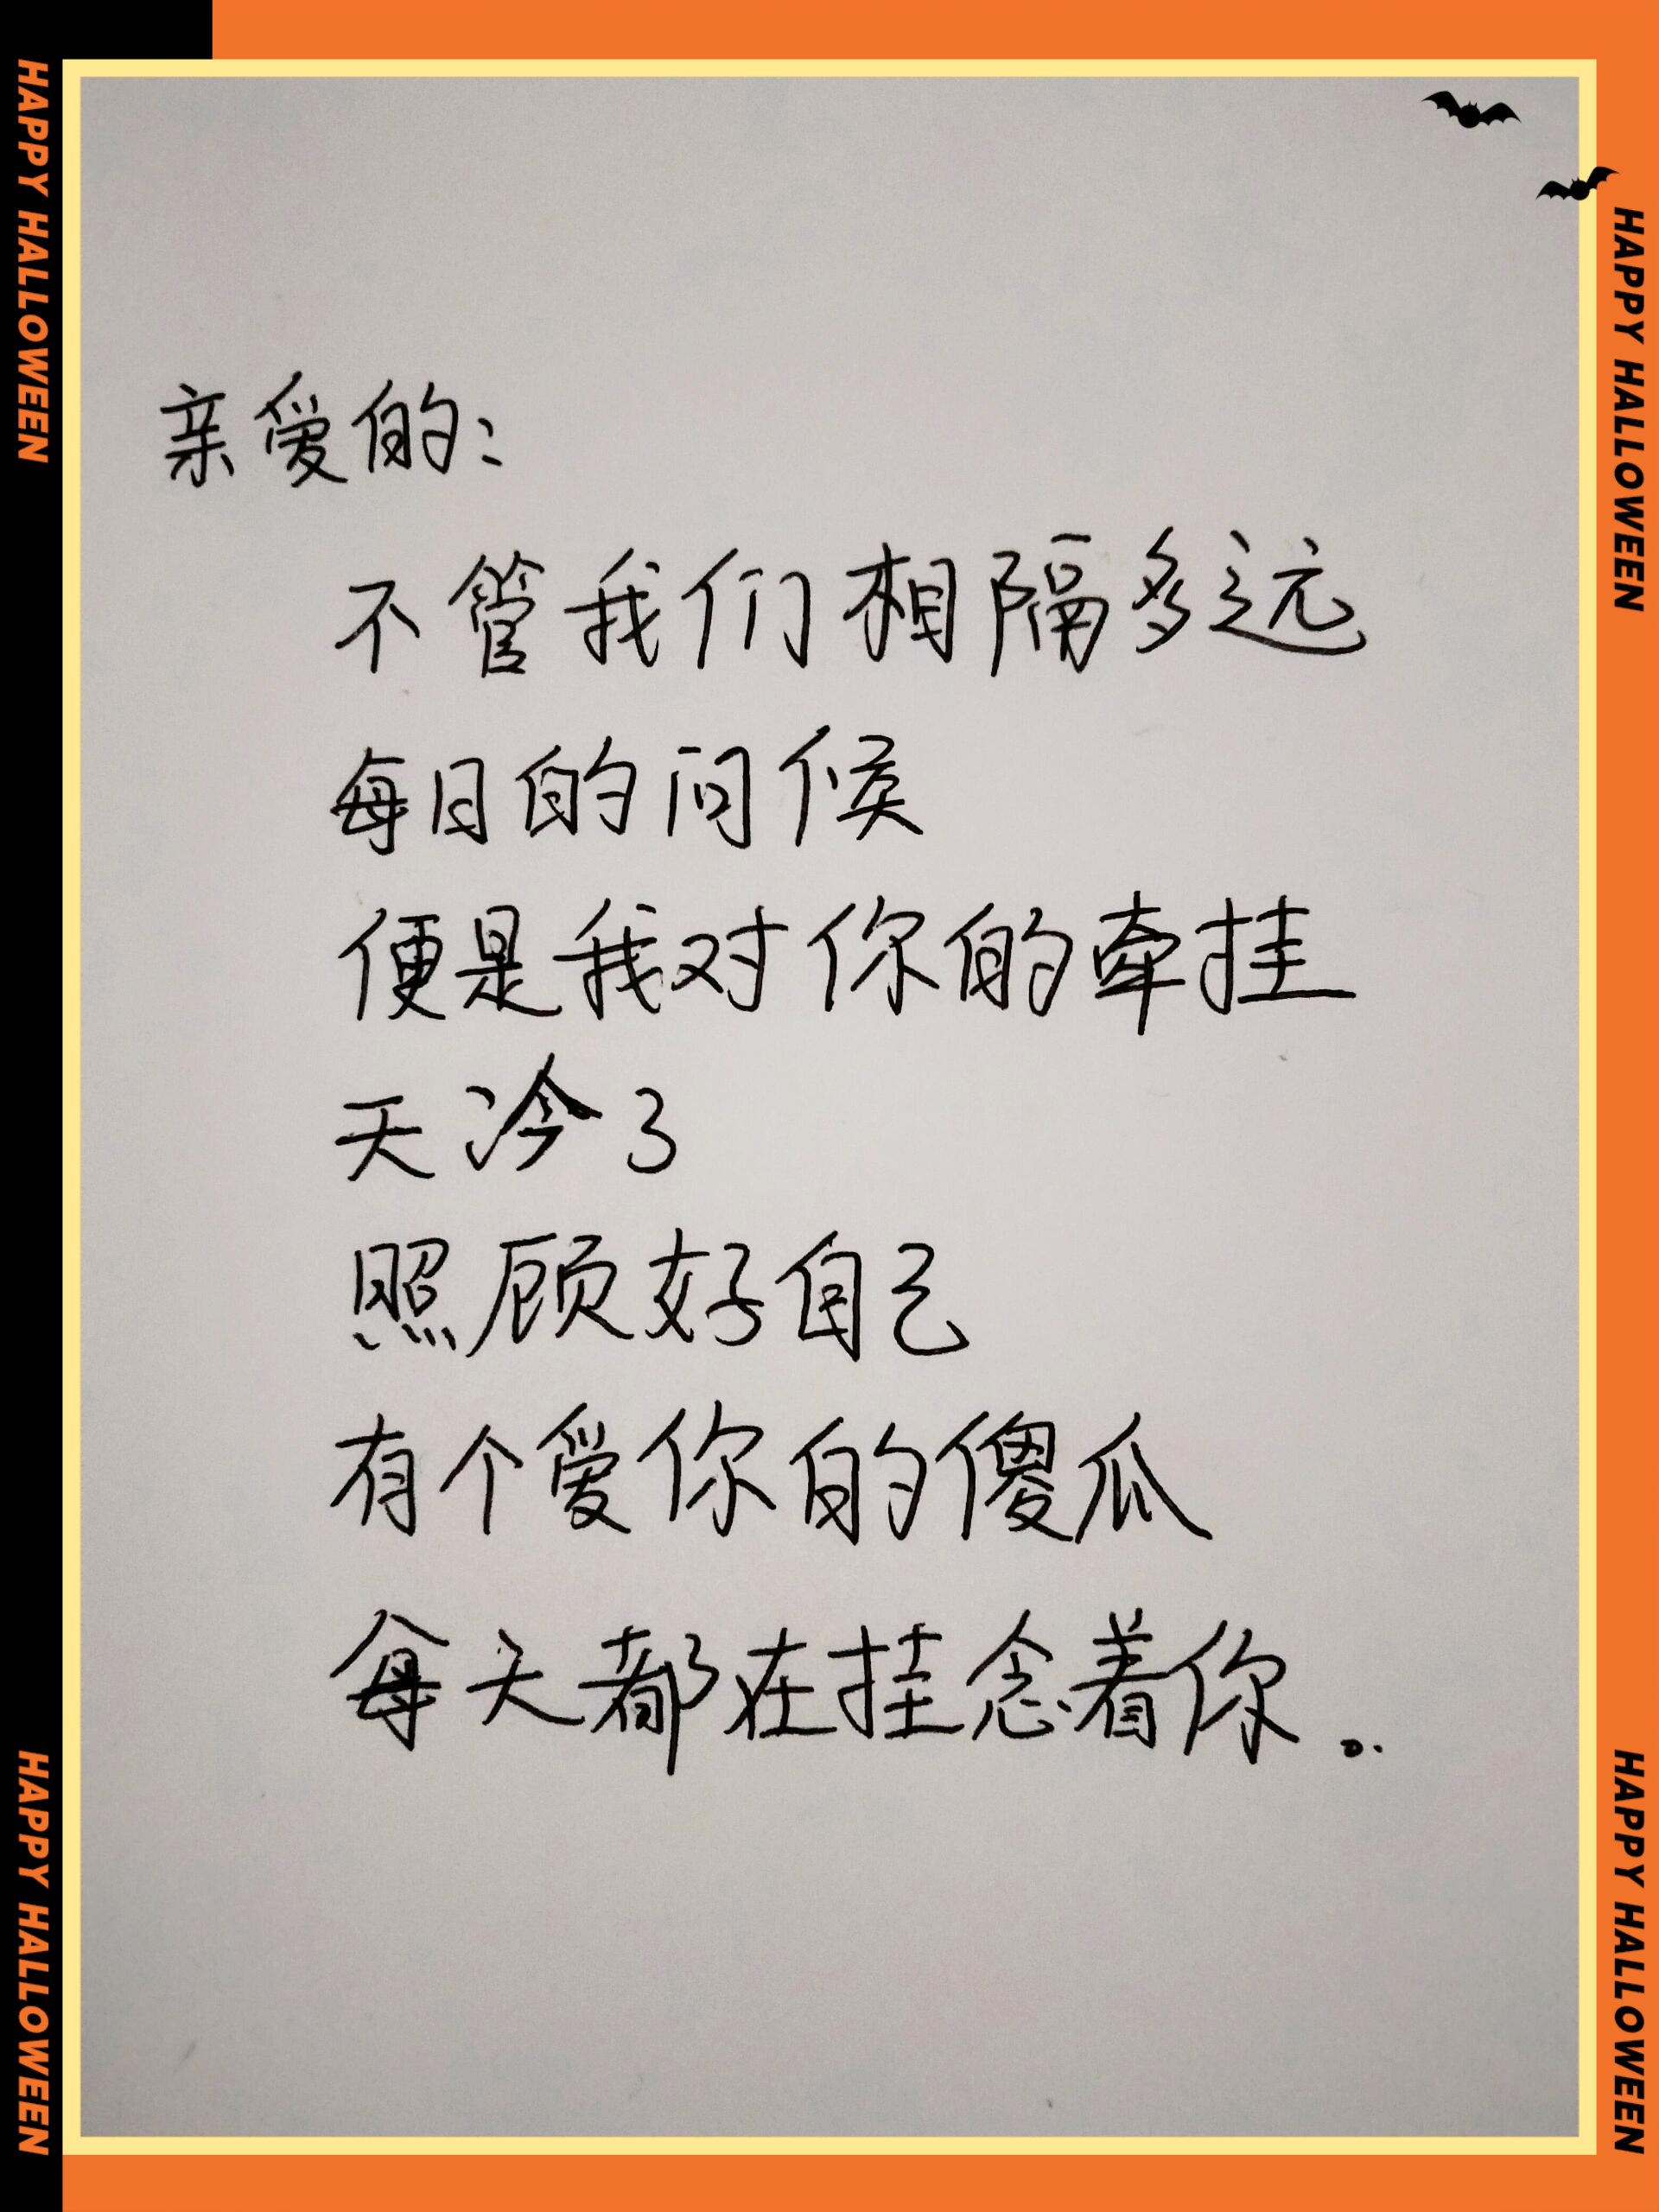 HAPPY HALLOWEEN
HAPPY HALLOWEEN
亲爱的:
不管我们相隔多远
每日的问候
便是我对你的牵挂
天冷了
照顾好自己
有个爱你的傻瓜
每天都在挂念着你。
HAPPY HALLOWEEN
HAPPY HALLOWEEN